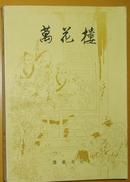 萬花樓